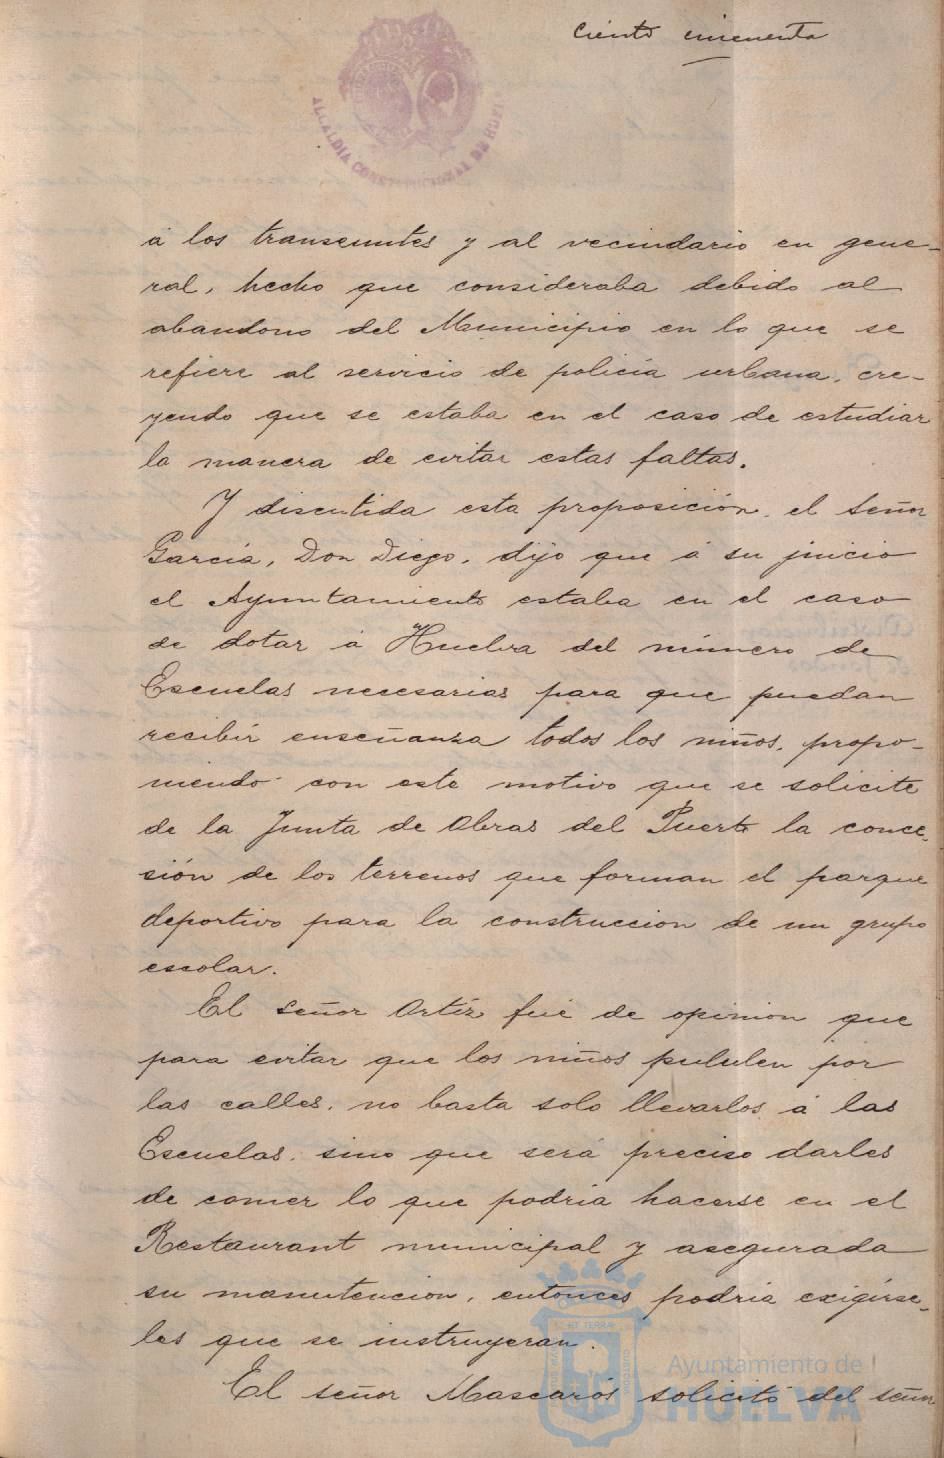 Ciento cincuenta
ALCALDIA CONSTITUCIONAL DE HUELVA
á los transeuntes y al vecindario en gene-
ral, hecho que consideraba debido al
abandono del Municipio en lo que se
refiere al servicio de policía urbana, cre-
yendo que se estaba en el caso de estudiar
la manera de evitar estas faltas.
Y discutida esta proposición, el Señor
García, Don Diego, dijo que á su juicio
el Ayuntamiento estaba en el caso
de dotar á Huelva del número de
Escuelas necesarias para que puedan
recibir enseñanza todos los niños, propo-
niendo con este motivo que se solicite
de la Junta de Obras del Puerto la conce-
sión de los terrenos que forman el parque
deportivo para la construccion de un grupo
escolar.
El señor Ortíz fué de opinion que
para evitar que los niños pululen por
las calles, no basta solo llevarlos á las
Escuelas, sino que será preciso darles
de comer lo que podria hacerse en el
Restaurant municipal y asegurada
su manutencion, entonces podria exigirse-
les que se instruyeran.
El señor Mascarós solicitó del señor
Ayuntamiento de
HUELVA